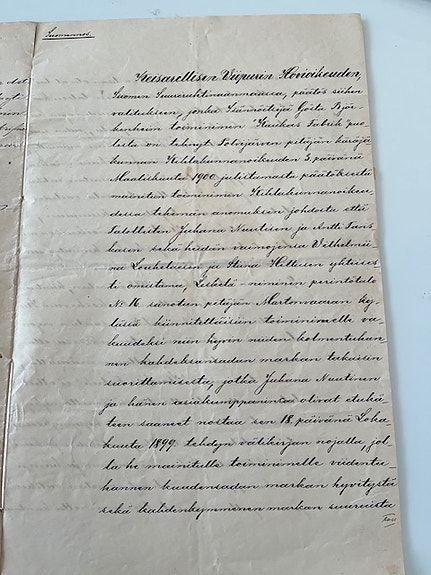 Suomennos.
Keisarillisen Viipurin Hovioikeuden,
Suomen Suuriruhtinaanmaassa, päätös siihen
valitukseen, jonka Isännöitsijä Gösta Björ-
kenheim toiminimen "Kaukas Fabrik" puo-
lesta on tehnyt Polvijärven pitäjän käräjä
kunnan Kihlakunnanoikeuden 3. päivänä
Maaliskuuta 1900 julistamasta päätöksestä
mainitun toiminimen Kihlakunnanoikeu-
dessa tekemän anomuksen johdosta että
Talollisten Juhana Nuutisen ja Antti Tans-
kasen sekä heidän vaimojensa Velhelmii-
na Louhelaisen ja Stiina Hiltusen yhteises-
ti omistama, -niminen perintötalo
No 16 sanotun pitäjän Martonvaaran ky-
lässä kiinnitettäisiin toiminimelle va-
kuudeksi niin hyvin niiden kolmentuhan-
nen kahdeksansadan markan takaisin
suorittamisesta, jotka Juhana Nuutinen
ja hänen asiakumppaninsa olivat etukä-
teen saaneet nostaa sen 18. päivänä Loka-
kuuta 1899 tehdyn välikirjan nojalla, jol-
la he mainitulle toiminimelle viidentu-
hannen kuudensadan markan hyvitystä
sekä kahdenkymmenen markan suuruista